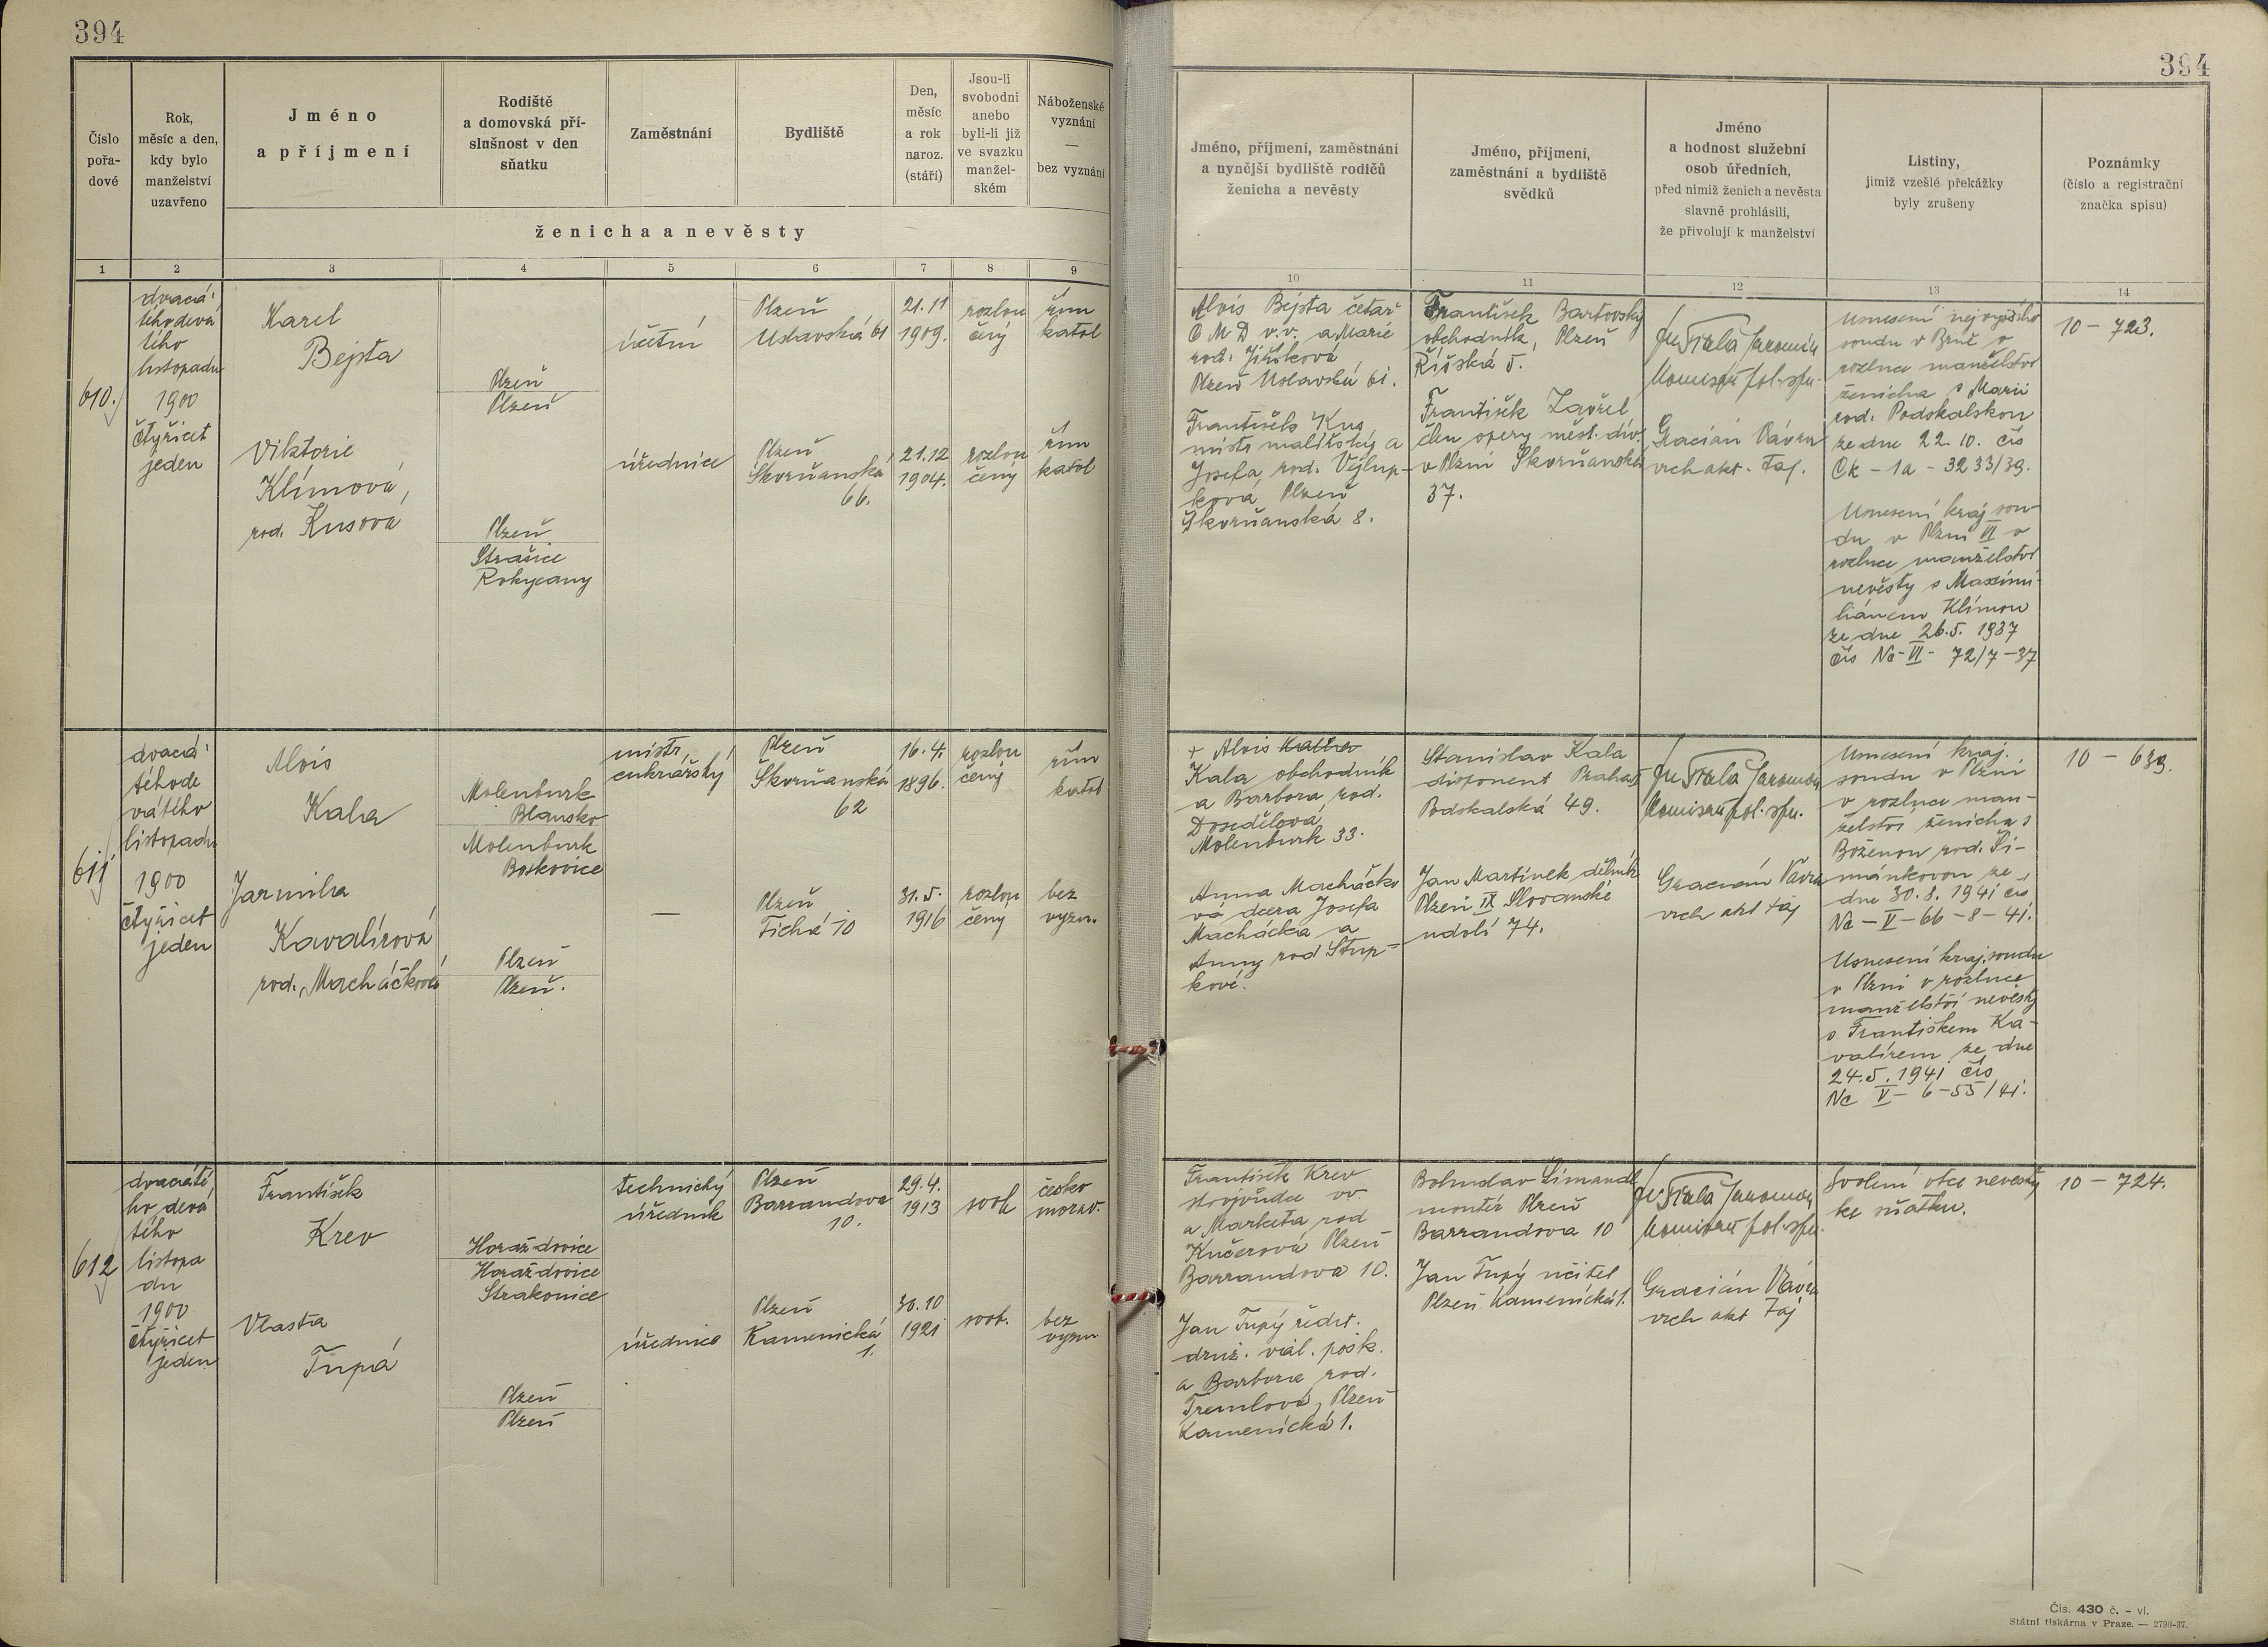 394
394
Číslo
pořa-
dové
Rok,
měsíc a den,
kdy bylo
manželství
uzavřeno
Jméno
a příjmení
Rodiště
a domovská pří-
slušnost v den
sňatku
Zaměstnání
Bydliště
Den,
měsíc
a rok
naroz.
(stáří)
Jsou-li
svobodni
anebo
byli-li již
ve svazku
manžel-
ském
Náboženské
vyznání
—
bez vyznání
ženicha a nevěsty
Jméno, příjmení, zaměstnání
a nynější bydliště rodičů
ženicha a nevěsty
Jméno, příjmení,
zaměstnání a bydliště
svědků
Jméno
a hodnost služební
osob úředních,
před nimiž ženich a nevěsta
slavně prohlásili,
že přivolují k manželství
Listiny,
jimiž vzešlé překážky
byly zrušeny
Poznámky
(číslo a registrační
značka spisu)
1 2 3 4 5 6 7 8 9
10 11 12 13 14
610.
dvacá-
tého devá
tého
listopadu
1900
čtyřicet
jeden
Karel
Bejsta
Plzeň
Plzeň
účetní
Plzeň
Úslavská 61
21.11
1909.
rozlou
čený
řím
katol
Viktorie
Klímová,
rod. Kusová
Plzeň
Strašice
Rokycany
úřednice
Plzeň
Škvrňanská
66.
21.12
1904.
rozlou
čený
řím
katol
Alois Bejsta četař
v.v. a Marie
rod. Jiříková
Plzeň Úslavská 61.
František Kus
mistr malířský a
Josefa, rod. Vejlup-
ková, Plzeň
Škvrňanská 8.
František Bartovský
obchodník, Plzeň
Říšská 5.
František Zavřel
člen opery měst. div.
v Plzni Škvrňanská
37.
Fiala Jaromír
Komisař pol. spr.
Gracián Vávra
vrch. akt. taj.
Usnesení nejvyššího
soudu v Brně o
rozluce manželství
ženicha s Marií
rod. Podskalskou
ze dne 22.10. čís
Ck - 1a - 3233/39.
Usnesení kraj sou-
du v Plzni VI o
rozluce manželství
nevěsty s Maximi-
liánem Klímou
ze dne 26.5. 1937
čís Nc-VI- 72/7-37
10 - 723.
611
dvacá-
tého de
vátého
listopadu
1900
čtyřicet
jeden
Alois
Kala
Molenburk
Blansko
Molenburk
Boskovice
mistr
cukrářský
Plzeň
Škvrňanská
62
16.4.
1896.
rozlou
čený
řím
katol
Jarmila
Kavalírová
rod. Macháčková
Plzeň
Plzeň.
—
Plzeň
Tichá 10
31.5.
1916
rozlou
čený
bez
vyzn.
+ Alois
Kala obchodník
a Barbora, rod.
Dosedělová,
Molenburk 33.
Anna Macháčko
vá dcera Josefa
Macháčka a
Anny rod Stup-
kové.
Stanislav Kala
disponent Praha
Podskalská 49.
Jan Martínek dělník
Plzeň IX Slovanské
udolí 74.
Fiala Jaromír
Komisař pol. spr.
Gracián Vávra
vrch akt taj
Usnesení kraj.
soudu v Plzni
o rozluce man-
želství ženicha s
Boženou rod. Ši-
mánkovou ze
dne 30.8. 1941 čís
Nc - V - 66 - 8 - 41.
Usnesení kraj. soudu
v Plzni o rozluce
manželství nevěsty
s Františkem Ka-
valírem ze dne
24.5. 1941 čís
Nc V - 6-55/41.
10 - 639.
612
dvacáté
ho devá
tého
listopa
du
1900
čtyřicet
jeden
František
Krev
Horažďovice
Horažďovice
Strakonice
technický
úředník
Plzeň
Barrandova
10.
29.4.
1913
svob
česko
morav.
Vlasta
Tupá
Plzeň
Plzeň
úřednice
Plzeň
Kamenická
1.
30.10
1921
svob.
bez
vyzn
František Krev
strojvůdce vv.
a Marketa rod
Kučerová Plzeň
Barrandova 10.
Jan Tupý ředit.
druž. vál. pošk.
a Barbora, rod.
Tremlová, Plzeň
Kamenická 1.
Bohuslav Šimandl
montér Plzeň
Barrandova 10
Jan Tupý učitel
Plzeň Kamenická 1.
Fiala Jaromír
Komisař pol. spr.
Gracián Vávra
vrch akt taj
Svolení otce nevěsty
ke sňatku.
10 - 724.
Čís. 430 č. - vl.
Státní tiskárna v Praze. — 2790-37.